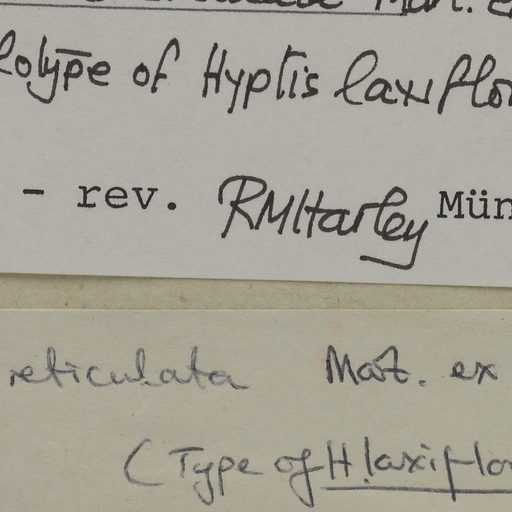 Mart. e
olotype of Hyptis laxiflor
- rev. RMHarley Mün
reticulata Mart. ex
(Type of H. laxiflo